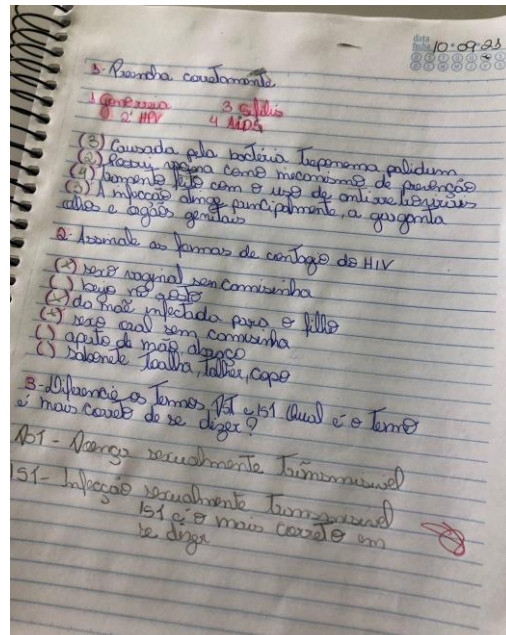 data
10.09.23
1- Preencha corretamente
1 Gonorreia 3 Sífilis
2 HPV 4 AIDS
(3) Causada pela bactéria Treponema palidum
(2) Possui vacina como mecanismo de prevenção
(4) tratamento feito com o uso de antirretrovirais
A infecção atinge principalmente, a garganta
olhos e orgãos genitais
2- Assinale as formas de contágio do HIV
(x) sexo vaginal sem camisinha
( ) beijo no rosto
(x) da mãe infectada para o filho
(x) sexo oral sem camisinha
( ) aperto de mão, abraço
( ) sabonete, toalha, talher, copo
3- Diferencie os termos DST e IST Qual é o termo
é mais correto de se dizer?
DST - Doença sexualmente Transmissível
IST - Infecção sexualmente Transmissível
IST é o mais correto em
se dizer